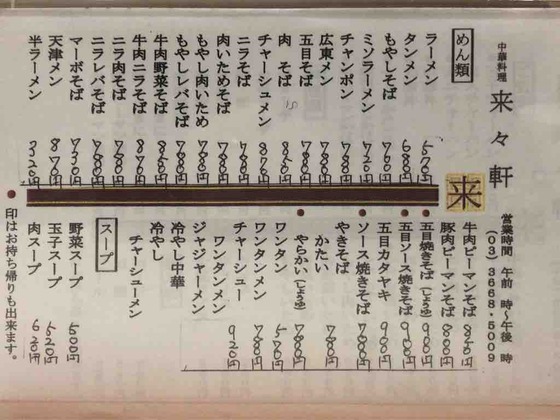 中華料理 来々軒
営業時間 午前 時〜午後 時
(03)3668-5009
来
めん類
ラーメン 570円
タンメン 680円
もやしそば 760円
ミソラーメン 720円
チャンポン 780円
広東メン 780円
五目そば 780円
肉そば 850円
チャーシューメン 870円
ニラそば 780円
肉いためそば 780円
もやし肉いため 780円
もやしレバそば 780円
牛肉野菜そば 850円
牛肉ニラそば 780円
ニラ肉そば 780円
ニラレバそば 780円
マーボそば 730円
天津メン 870円
半ラーメン 320円
牛肉ピーマンそば 850円
豚肉ピーマンそば 800円
五目焼きそば(しょうゆ) 900円
五目ソース焼きそば 900円
五目カタヤキ 900円
ソース焼きそば 780円
やきそば
かたい 780円
やらかい(しょうゆ) 780円
ワンタン 570円
ワンタンメン 780円
チャーシュー
ワンタンメン 920円
ジャジャーメン
冷やし中華
冷やし
チャーシューメン
スープ
野菜スープ 500円
玉子スープ 520円
肉スープ 620円
●印はお持ち帰りも出来ます。